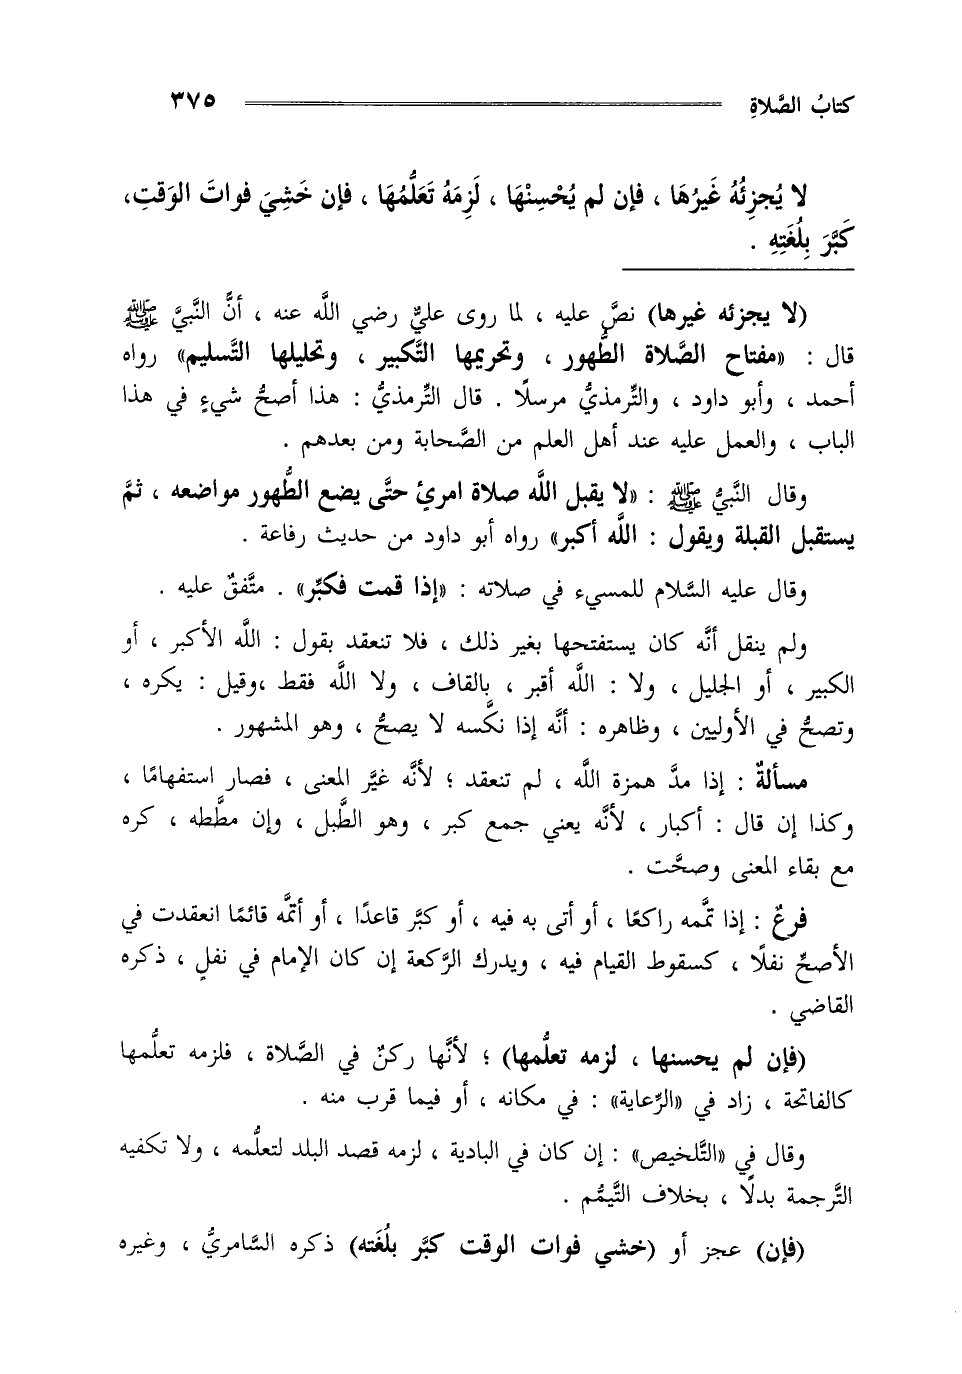 كتابُ الصَّلاةِ ٣٧٥
لا يُجزِئُهُ غَيرُهَا ، فإن لم يُحْسِنْهَا ، لَزِمَهُ تَعَلُّمُهَا ، فإن خَشِيَ فواتَ الوَقتِ،
كَبَّرَ بِلُغَتِهِ .
(لا يجزئه غيرها) نصَّ عليه ، لما روى عليٌّ رضي اللَّه عنه ، أنَّ النَّبيَّ ﷺ
قال : «مفتاح الصَّلاة الطُّهور ، وتحريمها التَّكبير ، وتحليلها التَّسليم» رواه
أحمد ، وأبو داود ، والتِّرمذيُّ مرسلًا . قال التِّرمذيُّ : هذا أصحُّ شيءٍ في هذا
الباب ، والعمل عليه عند أهل العلم من الصَّحابة ومن بعدهم .
وقال النَّبيُّ ﷺ : «لا يقبل اللَّه صلاة امرئٍ حتَّى يضع الطُّهور مواضعه ، ثمَّ
يستقبل القبلة ويقول : اللَّه أكبر» رواه أبو داود من حديث رفاعة .
وقال عليه السَّلام للمسيء في صلاته : «إذا قمت فكبِّر» . متَّفقٌ عليه .
ولم ينقل أنَّه كان يستفتحها بغير ذلك ، فلا تنعقد بقول : اللَّه الأكبر ، أو
الكبير ، أو الجليل ، ولا : اللَّه أقبر ، بالقاف ، ولا اللَّه فقط ،وقيل : يكره ،
وتصحُّ في الأوليين ، وظاهره : أنَّه إذا نكَّسه لا يصحُّ ، وهو المشهور .
مسألةٌ : إذا مدَّ همزة اللَّه ، لم تنعقد ؛ لأنَّه غيَّر المعنى ، فصار استفهامًا ،
وكذا إن قال : أكبار ، لأنَّه يعني جمع كبر ، وهو الطَّبل ، وإن مطَّطه ، كره
مع بقاء المعنى وصحَّت .
فرعٌ : إذا تمَّمه راكعًا ، أو أتى به فيه ، أو كبَّر قاعدًا ، أو أتمَّه قائمًا انعقدت في
الأصحِّ نفلًا ، كسقوط القيام فيه ، ويدرك الرَّكعة إن كان الإمام في نفلٍ ، ذكره
القاضي .
(فإن لم يحسنها ، لزمه تعلُّمها) ؛ لأنَّها ركنٌ في الصَّلاة ، فلزمه تعلُّمها
كالفاتحة ، زاد في «الرِّعاية» : في مكانه ، أو فيما قرب منه .
وقال في «التَّلخيص» : إن كان في البادية ، لزمه قصد البلد لتعلُّمه ، ولا تكفيه
التَّرجمة بدلًا ، بخلاف التَّيمُّم .
(فإن) عجز أو (خشي فوات الوقت كبَّر بلُغَته) ذكره السَّامريُّ ، وغيره